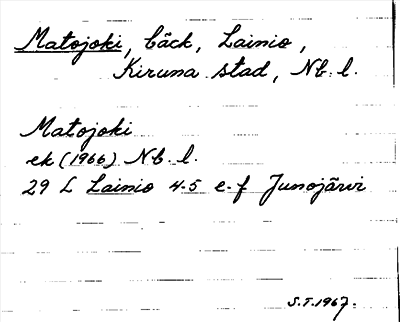 Matojoki, bäck, Lainio,
Kiruna stad, Nb. l.
Matojoki
ek (1966) Nb. l.
29 L Lainio 4-5 e-f Junojärvi
S.T. 1967.